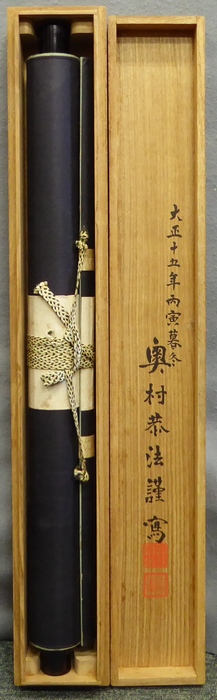 大正十五年丙寅暮冬
奥村恭法謹寫